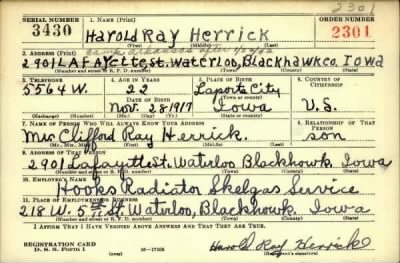 2301
SERIAL NUMBER 1. NAME (Print) ORDER NUMBER
3430 Harold Ray Herrick 2301
(First) (Middle) (Last)
Camp Arkansas after 1/24/42
2. ADDRESS (Print)
2901 LAFAYettest. Waterloo, Blackhawk Co. Iowa
(Number and street or R. F. D. number) (Town) (County) (State)
3. TELEPHONE 4. AGE IN YEARS 5. PLACE OF BIRTH 6. COUNTRY OF CITIZENSHIP
5564 W. 22 Laporte City
DATE OF BIRTH (Town or county)
Nov. 28 1917 Iowa U.S.
(Exchange) (Number) (Mo.) (Day) (Yr.) (State or country)
7. NAME OF PERSON WHO WILL ALWAYS KNOW YOUR ADDRESS 8. RELATIONSHIP OF THAT PERSON
Mr. Clifford Ray Herrick. son
(Mr., Mrs., Miss) (First) (Middle) (Last)
9. ADDRESS OF THAT PERSON
2901 Lafayettest. Waterloo Blackhowk Iowa
(Number and street or R. F. D. number) (Town) (County) (State)
10. EMPLOYER'S NAME
Hooks Radiator Skelgas Service
11. PLACE OF EMPLOYMENT OR BUSINESS
218 W. 5th St. Waterloo, Blackhowk Iowa
(Number and street or R. F. D. number) (Town) (County) (State)
I AFFIRM THAT I HAVE VERIFIED ABOVE ANSWERS AND THAT THEY ARE TRUE.
REGISTRATION CARD
D. S. S. Form 1 16—17105 Harold Ray Herrick
(Registrant's signature)